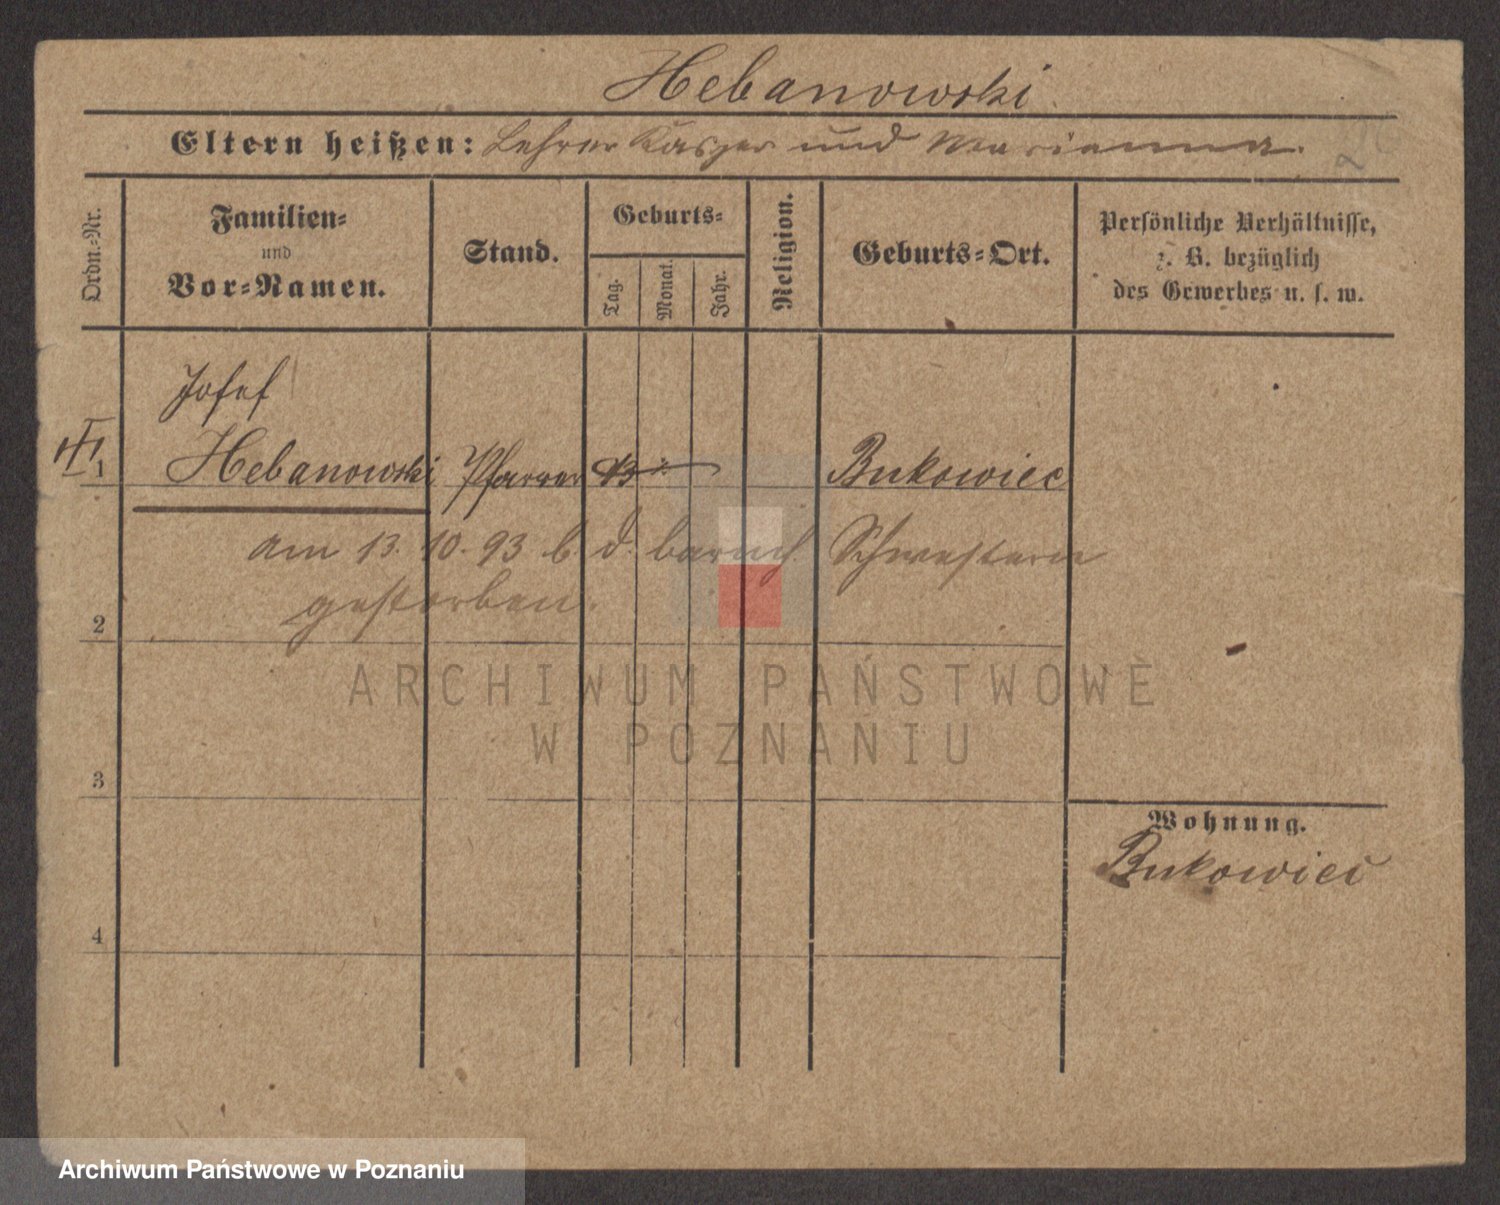 Hebanowski
Eltern heißen: Lehrer Kasper und Marianna.
Ordn.-Nr.
Familien-
und
Vor-Namen.
Stand.
Geburts-
Tag.
Monat.
Jahr.
Religion.
Geburts-Ort.
Persönliche Verhältnisse,
z. B. bezüglich
des Gewerbes u. s. w.
Josef
1 Hebanowski Pfarrer 13 Bukowiec
am 13. 10. 93 b. d. barmh Schwestern
gestorben.
2
3
4
Wohnung.
Bukowiec
ARCHIWUM PAŃSTWOWE
W POZNANIU
Archiwum Państwowe w Poznaniu